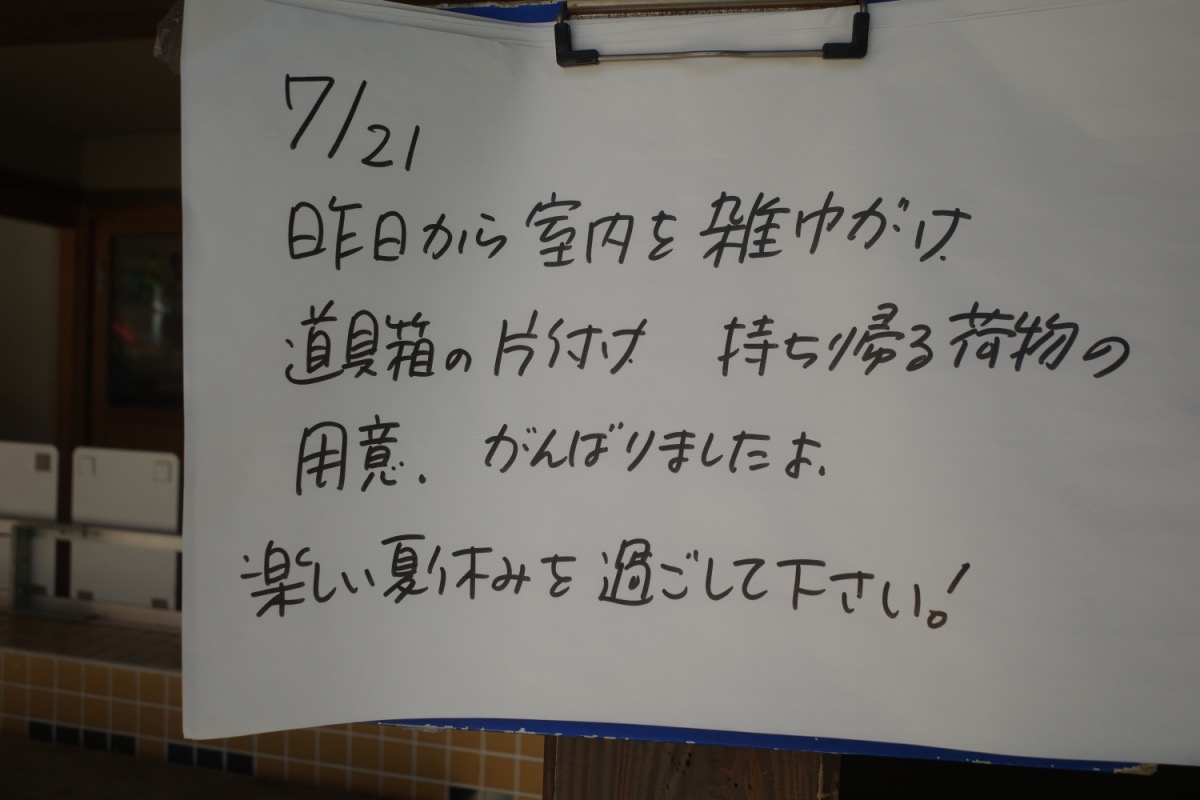 7/21
昨日から室内を雑巾がけ
道具箱の片付け 持ち帰る荷物の
用意. がんばりましたよ.
楽しい夏休みを過ごして下さい!